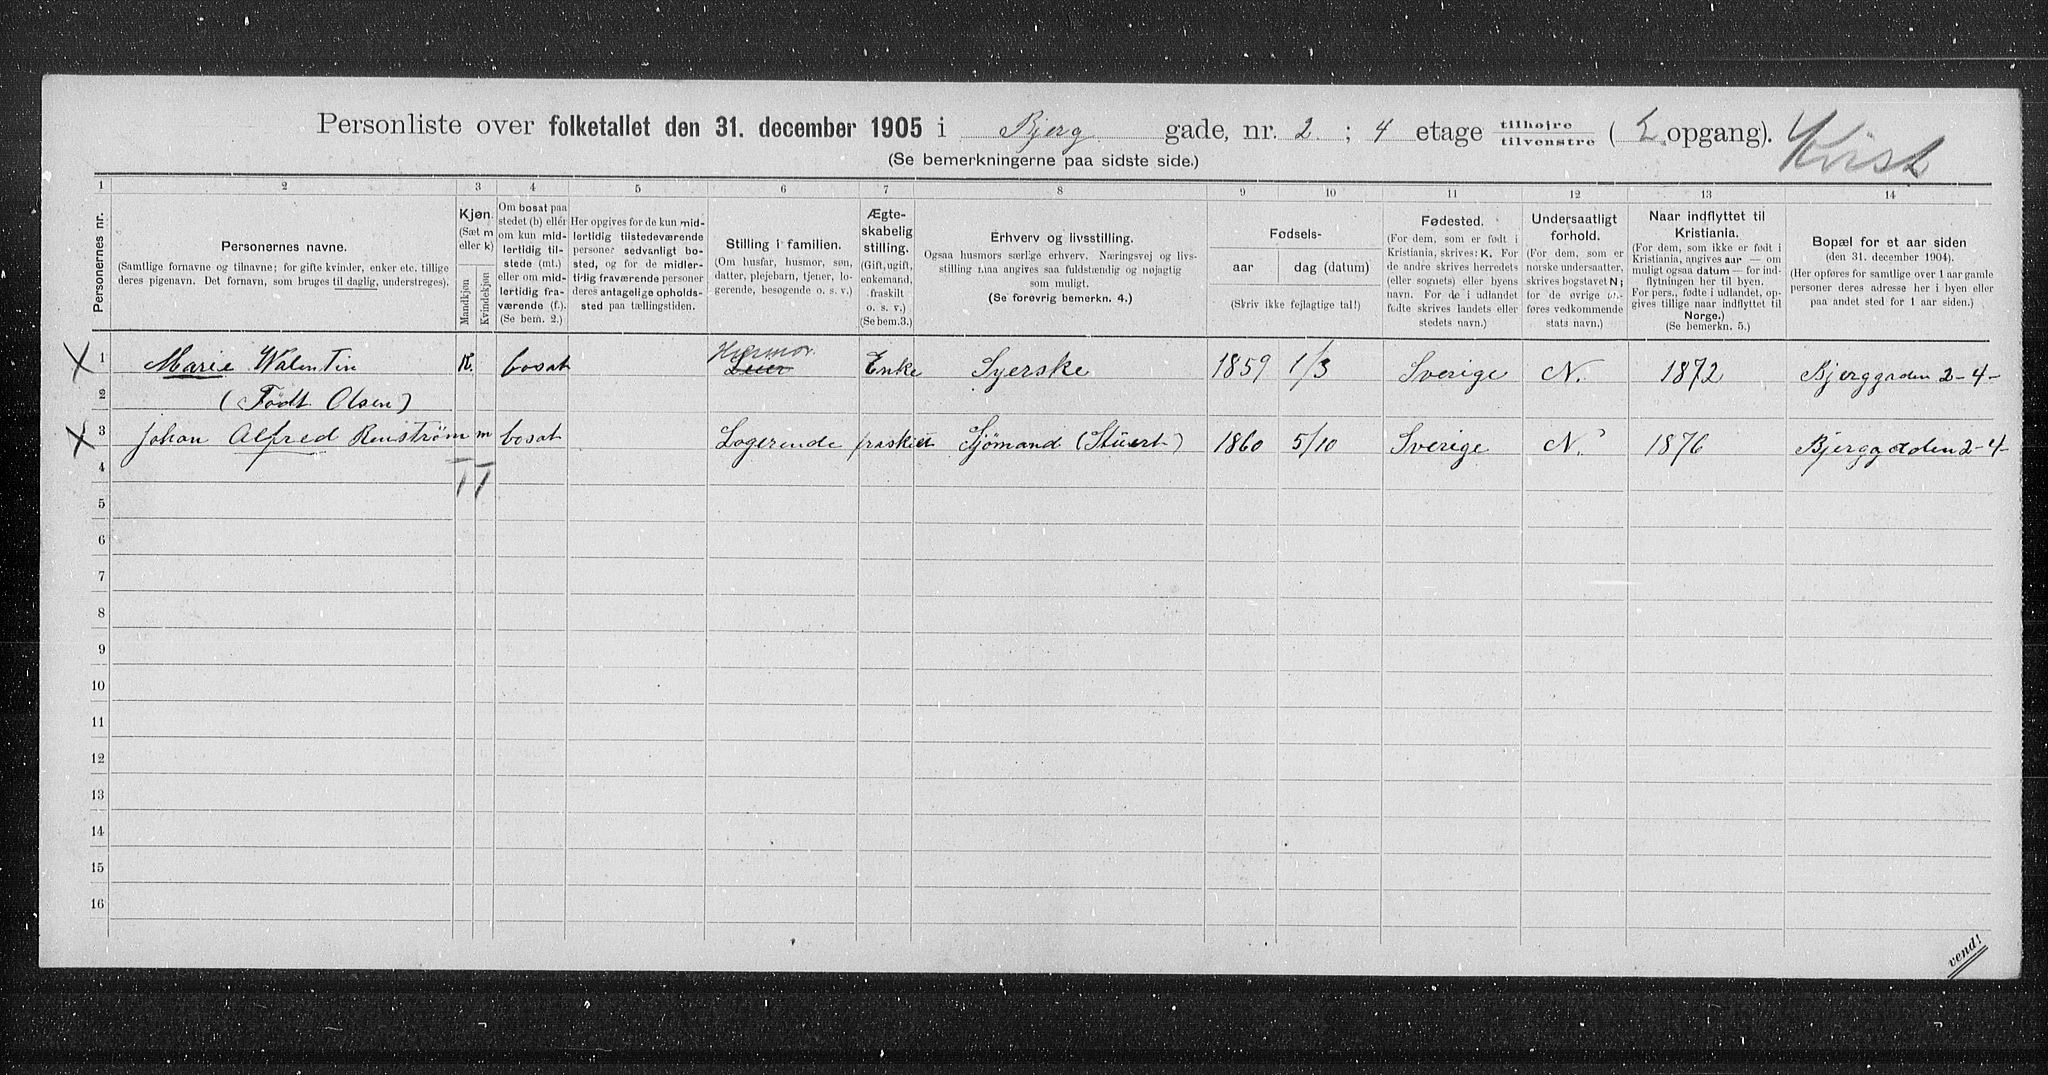 Personliste over folketallet den 31. december 1905 i Bjerg gade, nr. 2 ; 4 etage tilhøjre tilvenstre ( opgang).
(Se bemerkningerne paa sidste side.)
1 2 3 4 5 6 7 8 9 10 11 12 13 14
Personernes nr.
Personernes navne.
(Samtlige fornavne og tilnavne; for gifte kvinder, enker etc. tillige
deres pigenavn. Det fornavn, som bruges til daglig, understreges).
Kjøn.
(Sæt m
eller k)
Mandkjøn
Kvindekjøn
Om bosat paa
stedet (b) eller
om kun mid-
lertidig til-
stede (mt.)
eller om mid-
lertidig fra-
værende (f.).
(Se bem. 2.)
Her opgives for de kun mid-
lertidig tilstedeværende
personer sedvanligt bo-
sted, og for de midler-
tidig fraværende personer
deres antagelige opholds-
sted paa tællingstiden.
Stilling i familien.
(Om husfar, husmor, søn,
datter, plejebarn, tjener, lo-
gerende, besøgende o. s. v.)
Ægte-
skabelig
stilling.
(Gift, ugift,
enkemand,
fraskilt
o. s. v.)
(Se bem. 3.)
Erhverv og livsstilling.
Ogsaa husmors særlige erhverv. Næringsvej og livs-
stilling maa angives saa fuldstændig og nøjagtig
som muligt.
(Se forøvrig bemerkn. 4.)
Fødsels-
aar
dag (datum)
(Skriv ikke fejlagtige tal!)
Fødested.
(For dem, som er født i
Kristiania, skrives: K. For
de andre skrives herredets
(eller sognets) eller byens
navn. For de i udlandet
fødte skrives landets eller
stedets navn.)
Undersaatligt
forhold.
(For dem, som er
norske undersaatter,
skrives bogstavet N;
for de øvrige an-
føres vedkommende
stats navn.)
Naar indflyttet til
Kristiania.
(For dem, som ikke er født i
Kristiania, angives aar — om
muligt ogsaa datum — for ind-
flytningen her til byen.
For pers., fødte i udlandet, op-
gives tillige naar indflyttet til
Norge.)
(Se bemerkn. 5.)
Bopæl for et aar siden
(den 31. december 1904).
(Her opføres for samtlige over 1 aar gamle
personer deres adresse her i byen eller
paa andet sted for 1 aar siden.)
X 1 Marie Valentin K. bosat Husmor Leier Enke Syerske 1859 1/3 Sverige N. 1872 Bjerggaden 2-4-
2 (Födt Olsen)
X 3 Johan Alfred Renström m bosat Logerende fraskiet Sjömand (Stuert) 1860 5/10 Sverige N. 1876 Bjerggadden 2-4-
4
5
6
7
8
9
10
11
12
13
14
15
16
vend!